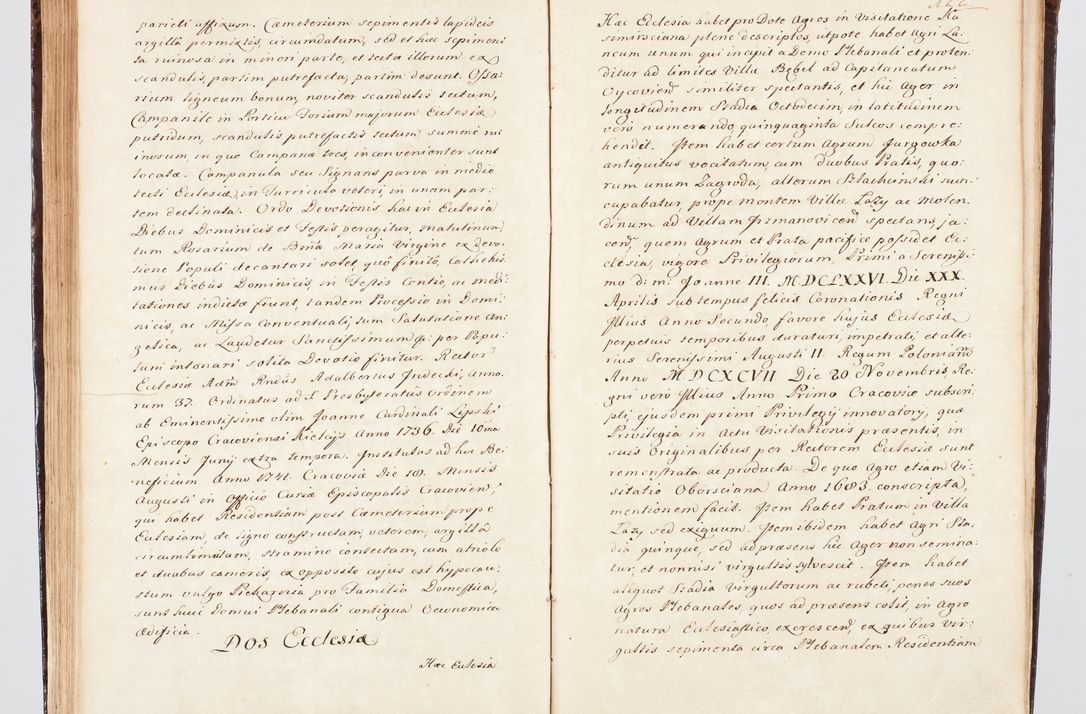 parieti affixum. Cæmeterium sepimentis lapideis
argillâ permixtis, circumdatum, sed et hæc sepimen-
ta ruinosa in minori parte, et tecta illorum ex
scandulis, partim putrefacta, partim desunt. Ossa-
rium ligneum bonum, noviter scandulis tectum,
Campanile in Porticu Forium majorum Ecclesiæ
putridum, scandulis putrefactis tectum summe ru-
inosum, in quo Campanæ tres, inconvenienter sunt
locatæ. Campanula seu Signans parva in medio
tecti Ecclesiæ, in Turriculo veteri, in unam par-
tem declinata. Ordo Devotionis hac in Eclesia
Diebus Dominicis et Festis peragitur, matutinum
tum Rosarium de Bmã Maria Virgine ex devo-
tione Populi decantari solet, quô finitô, Cathehis-
mus Diebus Dominicis, in Festis Contio, ac medi-
tationes indictæ fiunt, tandem Processio in Domi-
nicis, ac Missa Conventualis, cum Salutatione An-
gelica, ac Laudetur Sanctissimum &: per Popu-
lum intonari solita Devotio finitur. Rector
Eclesiæ Adm̃ Rndũs Adalbertus Jndecki, Anno-
rum 37. Ordinatus ad S. Presbyteratûs Ordinem
ab Eminentissimo olim Joanne Cardinali Lipski
Episcopo Cracoviensi Kielcijs Anno 1736. Die 10ma
Mensis Junij extra tempora. Institutus ad hoc Be-
neficium Anno 1741. Cracoviæ Die 10. Mensis
Augusti in Officio Curiæ Episcopalis Cracovien̄,
qui habet Residentiam post Cæmeterium prope
Ecclesiam, de ligno constructam, veterem, argillâ
circumlimitam, stramine contectam, cum atriolo
et duabus cameris, ex opposito cujus est hypocau-
stum vulgo Piekarnia pro Familia Domestica,
sunt huic Domui Plebanali contigua Oeconomica
Ædificia.
DOS Ecclesiæ
Hæc Eclesia
Hæc Ecclesia habet pro Dote Agros in Visitatione Ka-
simirsciana plene descriptos, utpote habet Agri La-
neum unum qui incipit a Domo Plebanali et proten-
ditur ad limites Villæ Bębel ad Capitaneatum
Oycovien̄ similiter spectantis, et hic Ager in
longitudinem Stadia Octodecim, in latitudinem
verò numerando, quinquaginta Sulcos compre-
hendit. Item habet certum Agrum Jurgowka
antiquitus vocitatum, cum duobus Pratis, quo-
rum unum Zagroda, alterum Stachinski nun-
cupabatur, prope montem Villæ Łazy ac Molen-
dinum ad Villam Jrzmanovicen̄ spectans, ja-
cen̄, quem Agrum et Prata pacifice possidet Ec-
clesia, vigore Privilegiorum, Primi a Serenissi-
mo di m. Joanne III. M.DCLXXVI. Die XXX.
Aprilis sub tempus felicis Coronationis Regni
Illius Anno Secundo, favore hujus Ecclesiæ
perpetuis temporibus duraturi, impetrati, et alte-
rius Serenissimi Augusti II. Regum Poloniarũ
Anno M.DCXCVII Die 20. Novembris, Re-
gni verò Illius Anno Primo Cracoviæ subscri-
pti, ejusdem primi Privilegij innovatorij, quæ
Privilegia in Actu Visitationis præsentis, in
suis Originalibus per Rectorem Ecclesiæ sunt
remonstrata ac producta. De quo Agro etiam Vi-
sitatio Oborsciana Anno 1603. conscripta,
mentionem facit. Item habet Pratum in Villa
Łazy sed exiguum. Item ibidem habet Agri Sta-
dia quinque, sed ad præsens hic Ager non semina-
tur, et nonnisi virgultis sylvescit. Item habet
aliquot Stadia Virgultorum ac rubeti, penes suos
Agros Plebanales, quos ad præsens colit, in Agro
natura Ecclesiastico, excrescen̄, ex quibus vir-
gultis sepimenta circa Plebanalem Residentiam